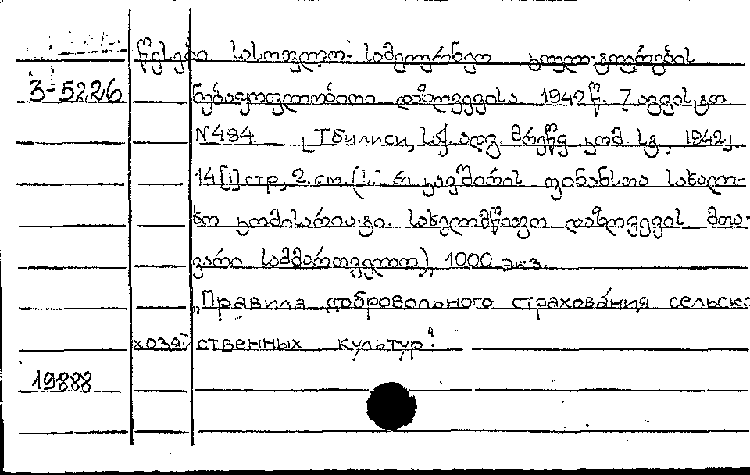 წესები სასოფლო-სამეურნეო კულტურების
3-5226 ნებაყოფლობითი დაზღვევისა 1942 წ. 7 აგვისტო
N484 [Тбилиси, საქ. ადგ. მრეწვ. კომ. სტ. 1942]
14[1] стр, 2 см. (სსრ კავშირის ფინანსთა სახალ-
ხო კომისარიატი. სახელმწიფო დაზღვევის მთა-
ვარი სამმართველო), 1000 экз.
"Правила добровольного страхования сельско
хозяйственных культур"
19888